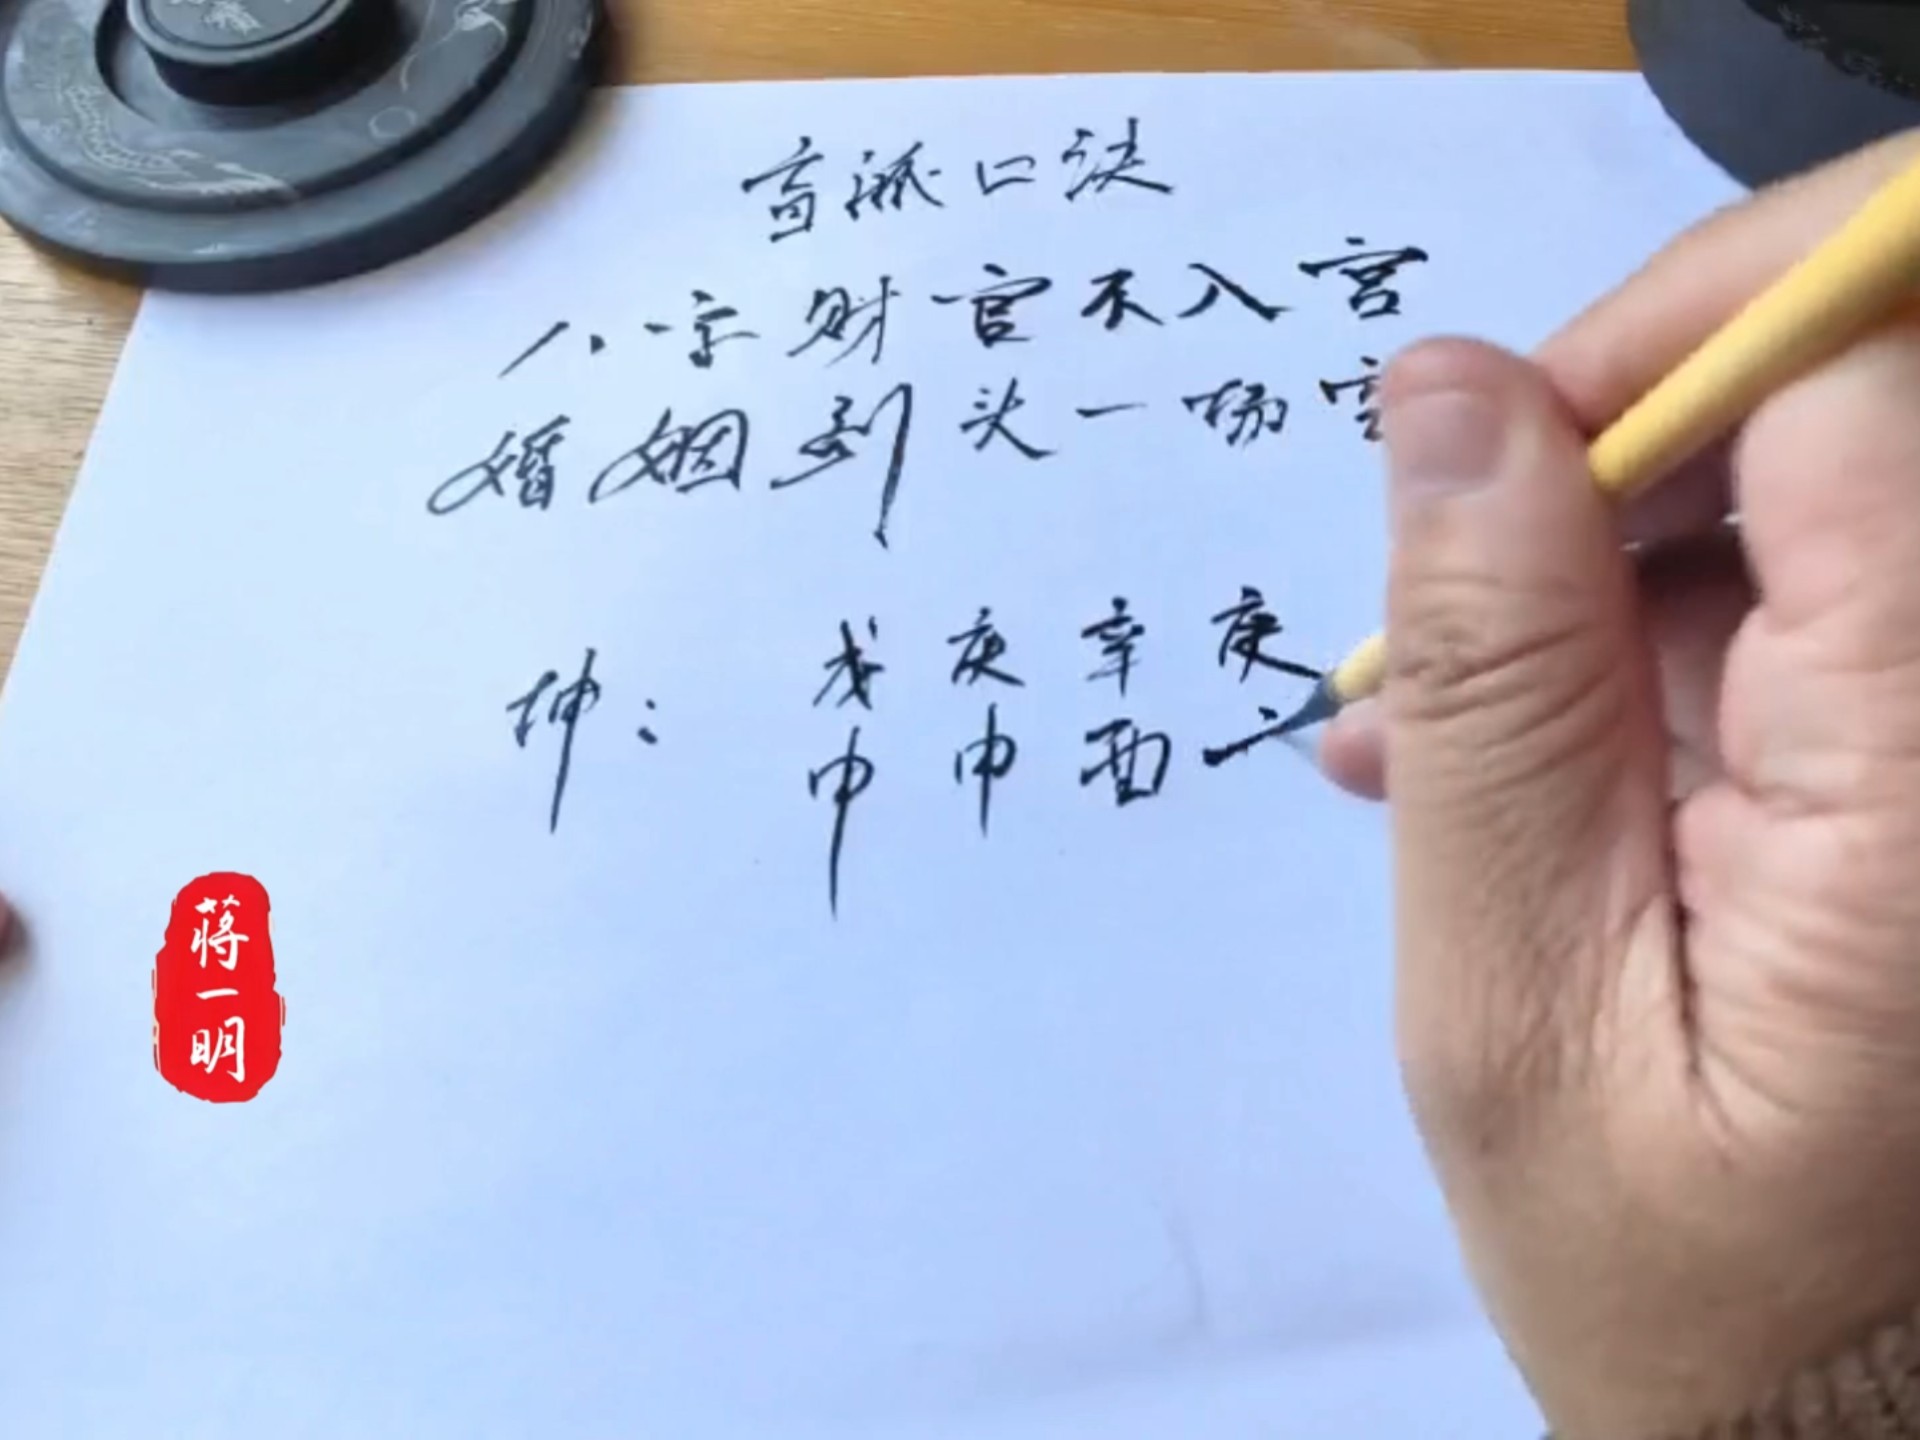 盲派口诀
八字财官不入宫
婚姻到头一场空
坤：戊庚辛庚
申申酉
蒋一明